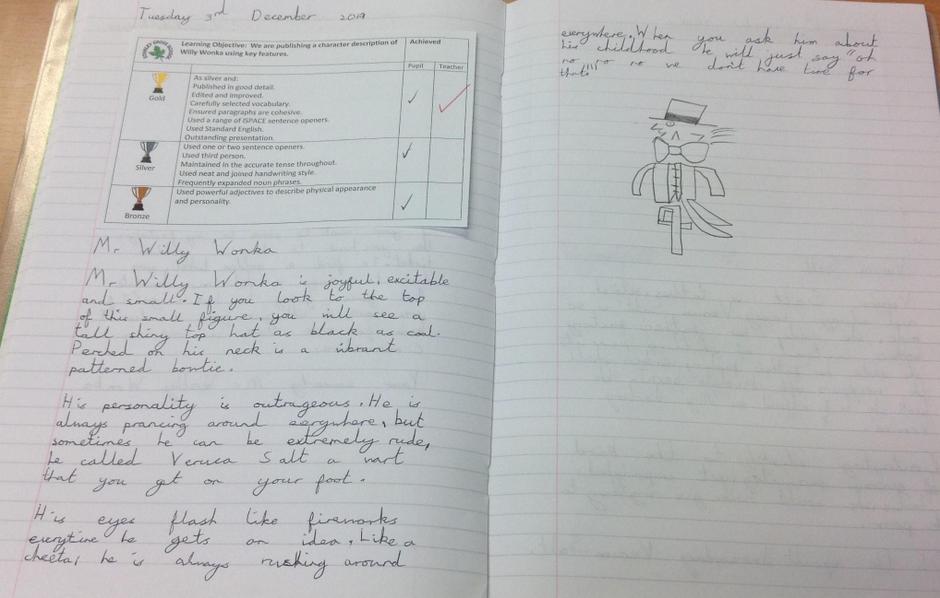 Tuesday 3rd December 2019
Learning Objective: We are publishing a character description of
Willy Wonka using key features.
Achieved
Pupil
Teacher
Gold
As silver and:
Published in good detail.
Edited and improved.
Carefully selected vocabulary.
Ensured paragraphs are cohesive.
Used a range of ISPACE sentence openers.
Used Standard English.
Outstanding presentation.
Silver
Used one or two sentence openers.
Used third person.
Maintained in the accurate tense throughout.
Used neat and joined handwriting style.
Frequently expanded noun phrases.
Bronze
Used powerful adjectives to describe physical appearance
and personality.
Mr Willy Wonka
Mr Willy Wonka is joyful, excitable
and small. If you look to the top
of this small figure, you will see a
tall shiny top hat as black as coal.
Perched on his neck is a vibrant
patterned bowtie.
His personality is outrageous. He is
always prancing around everywhere, but
sometimes he can be extremely rude,
he called Veruca Salt a wart
that you get on your foot.
His eyes flash like fireworks
everytime he gets an idea. Like a
cheeta, he is always rushing around
everywhere. When you ask him about
his childhood he will just say "oh
no no no we don't have time for
that"